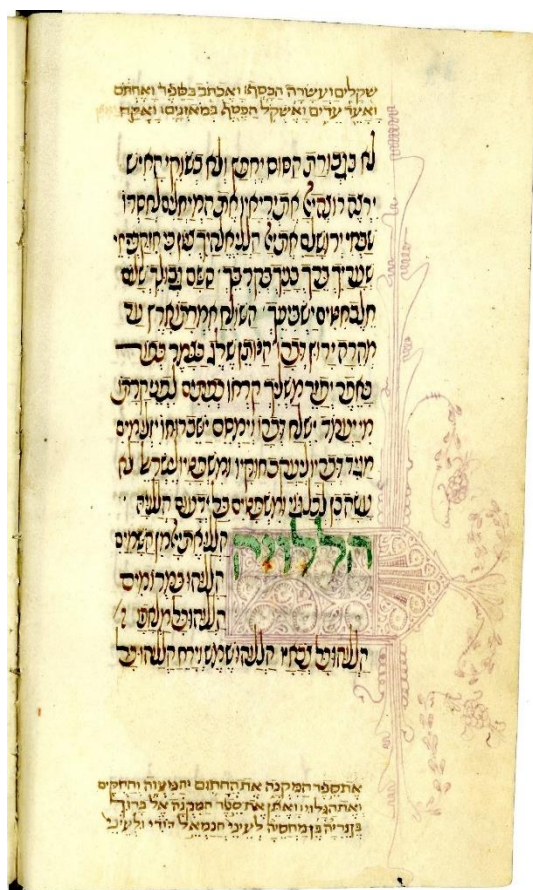 שקלים ועשרה הכסף׃ ואכתב בספר ואחתם
ואעד עדים ואשקל הכסף במאזנים׃ ואקח
לא בגבורת הסוס יחפץ ולא בשוקי האיש
ירצה רוצה יי את יריאיו את המיחלים לחסדו
שבחי ירושלם את יי הללי אלהיך ציון כי חזק בריחי
שעריך ברך בניך בקרבך השם גבולך שלום
חלב חטים ישביעך השולח אמרתו ארץ עד
מהרה ירוץ דברו הנותן שלג כצמר כפור
כאפר יפזר משליך קרחו כפתים לפני קרתו
מי יעמוד ישלח דברו וימסם ישב רוחו יזלו מים
מגיד דבריו ליעקב חוקיו ומשפטיו לישראל לא
עשה כן לכל גוי ומשפטים בל ידעום הללויה
הללויה הללו את יי מן השמים
הללוהו במרומים
הללוהו כל מלאכיו
הללוהו כל צבאיו הללוהו שמש וירח הללוהו כל
את ספר המקנה את החתום המצוה והחקים
ואת הגלוי׃ ואתן את ספר המקנה אל ברוך
בן נריה בן מחסיה לעיני חנמאל דודי ולעיני